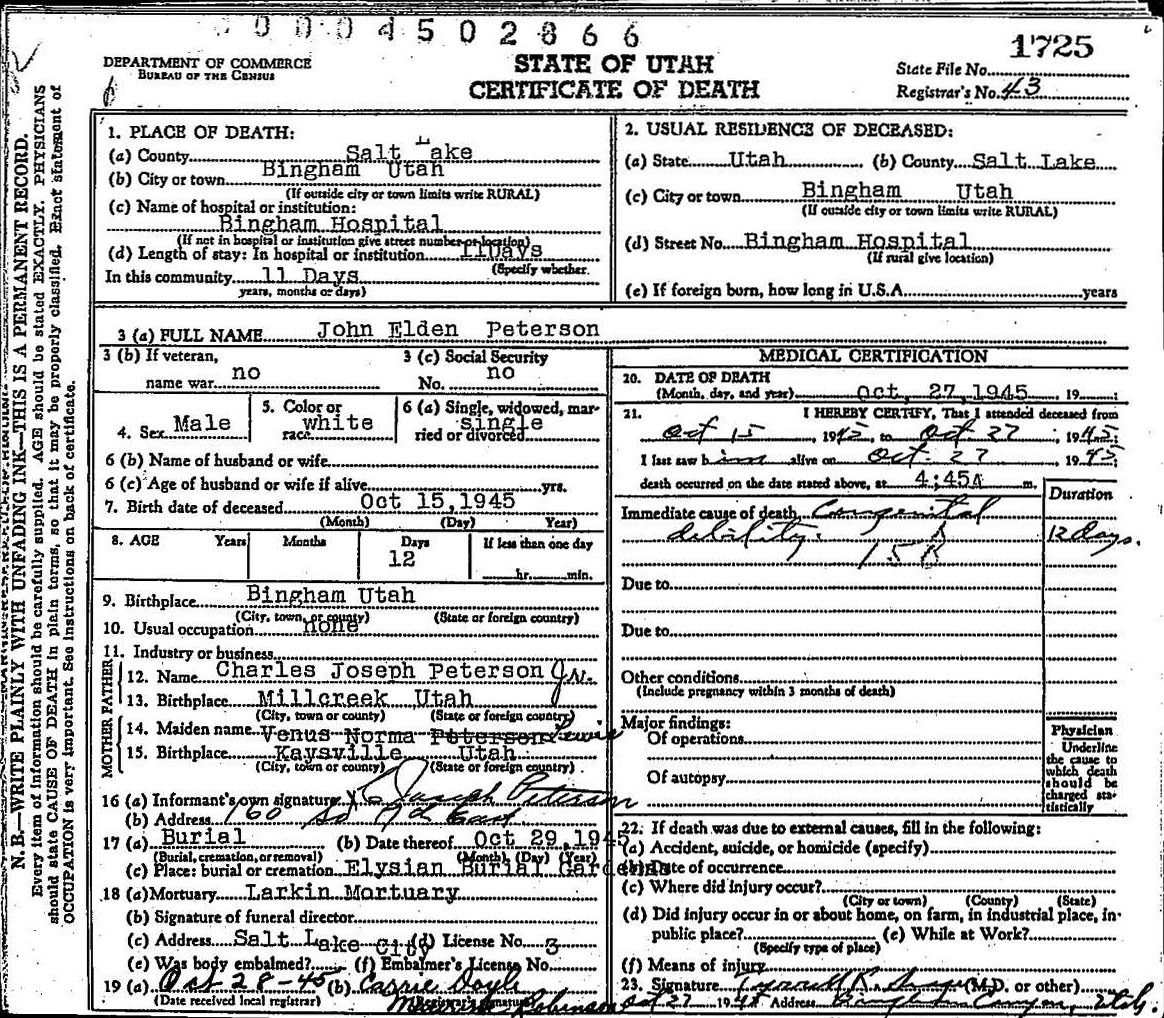 0004502866
1725
DEPARTMENT OF COMMERCE
BUREAU OF THE CENSUS
STATE OF UTAH
CERTIFICATE OF DEATH
State File No.
Registrar's No. 43
N. B.—WRITE PLAINLY WITH UNFADING INK—THIS IS A PERMANENT RECORD.
Every item of information should be carefully supplied. AGE should be stated EXACTLY. PHYSICIANS
should state CAUSE OF DEATH in plain terms, so that it may be properly classified. Exact statement of
OCCUPATION is very important. See instructions on back of certificate.
1. PLACE OF DEATH:
(a) County Salt Lake
(b) City or town Bingham Utah
(If outside city or town limits write RURAL)
(c) Name of hospital or institution:
Bingham Hospital
(If not in hospital or institution give street number or location)
(d) Length of stay: In hospital or institution 11Days
(Specify whether
In this community 11 Days
years, months or days)
2. USUAL RESIDENCE OF DECEASED:
(a) State Utah (b) County Salt Lake
(c) City or town Bingham Utah
(If outside city or town limits write RURAL)
(d) Street No. Bingham Hospital
(If rural give location)
(e) If foreign born, how long in U.S.A. years
3 (a) FULL NAME John Elden Peterson
3 (b) If veteran,
name war no
3 (c) Social Security
No. no
4. Sex Male
5. Color or
race white
6 (a) Single, widowed, mar-
ried or divorced single
6 (b) Name of husband or wife
6 (c) Age of husband or wife if alive yrs.
7. Birth date of deceased Oct 15,1945
(Month) (Day) Year)
8. AGE Years Months Days If less than one day
12
hr. min.
9. Birthplace Bingham Utah
(City, town, or county) (State or foreign country)
10. Usual occupation none
11. Industry or business
FATHER
12. Name Charles Joseph Peterson Jr.
13. Birthplace Millcreek Utah
(City, town or county) (State or foreign country)
MOTHER
14. Maiden name Venus Norma Peterson Lewis
15. Birthplace Kaysville Utah
(City, town or county) (State or foreign country)
16 (a) Informant's own signature C Joseph Peterson
(b) Address 160 So
17 (a) Burial (b) Date thereof Oct 29,1945
(Burial, cremation, or removal) (Month) (Day) (Year)
(c) Place: burial or cremation Elysian Burial Gardens
18 (a) Mortuary Larkin Mortuary
(b) Signature of funeral director
(c) Address Salt Lake City (d) License No. 3
(e) Was body embalmed? (f) Embalmer's License No.
19 (a) Oct 28-45 (b) Carrie Doyle
(Date received local registrar) (Registrar's signature)
Robinson
MEDICAL CERTIFICATION
20. DATE OF DEATH
(Month, day, and year) Oct, 27,1945 , 19
21. I HEREBY CERTIFY, That I attended deceased from
Oct 15 , 1945, to Oct. 27 , 1945;
I last saw him alive on Oct. 27 , 1945;
death occurred on the date stated above, at 4;45A m.
Duration
Immediate cause of death Congenital
debility. 12 days.
158
Due to
Due to
Other conditions
(Include pregnancy within 3 months of death)
Major findings:
Of operations
Of autopsy
Physician
Underline
the cause to
which death
should be
charged sta-
tistically
22. If death was due to external causes, fill in the following:
(a) Accident, suicide, or homicide (specify)
(b) Date of occurrence
(c) Where did injury occur?
(City or town) (County) (State)
(d) Did injury occur in or about home, on farm, in industrial place, in-
public place? (e) While at Work?
(Specify type of place)
(f) Means of injury
23. Signature (M.D. or other)
Oct 27 1945 Address Bingham Canyon, Utah.